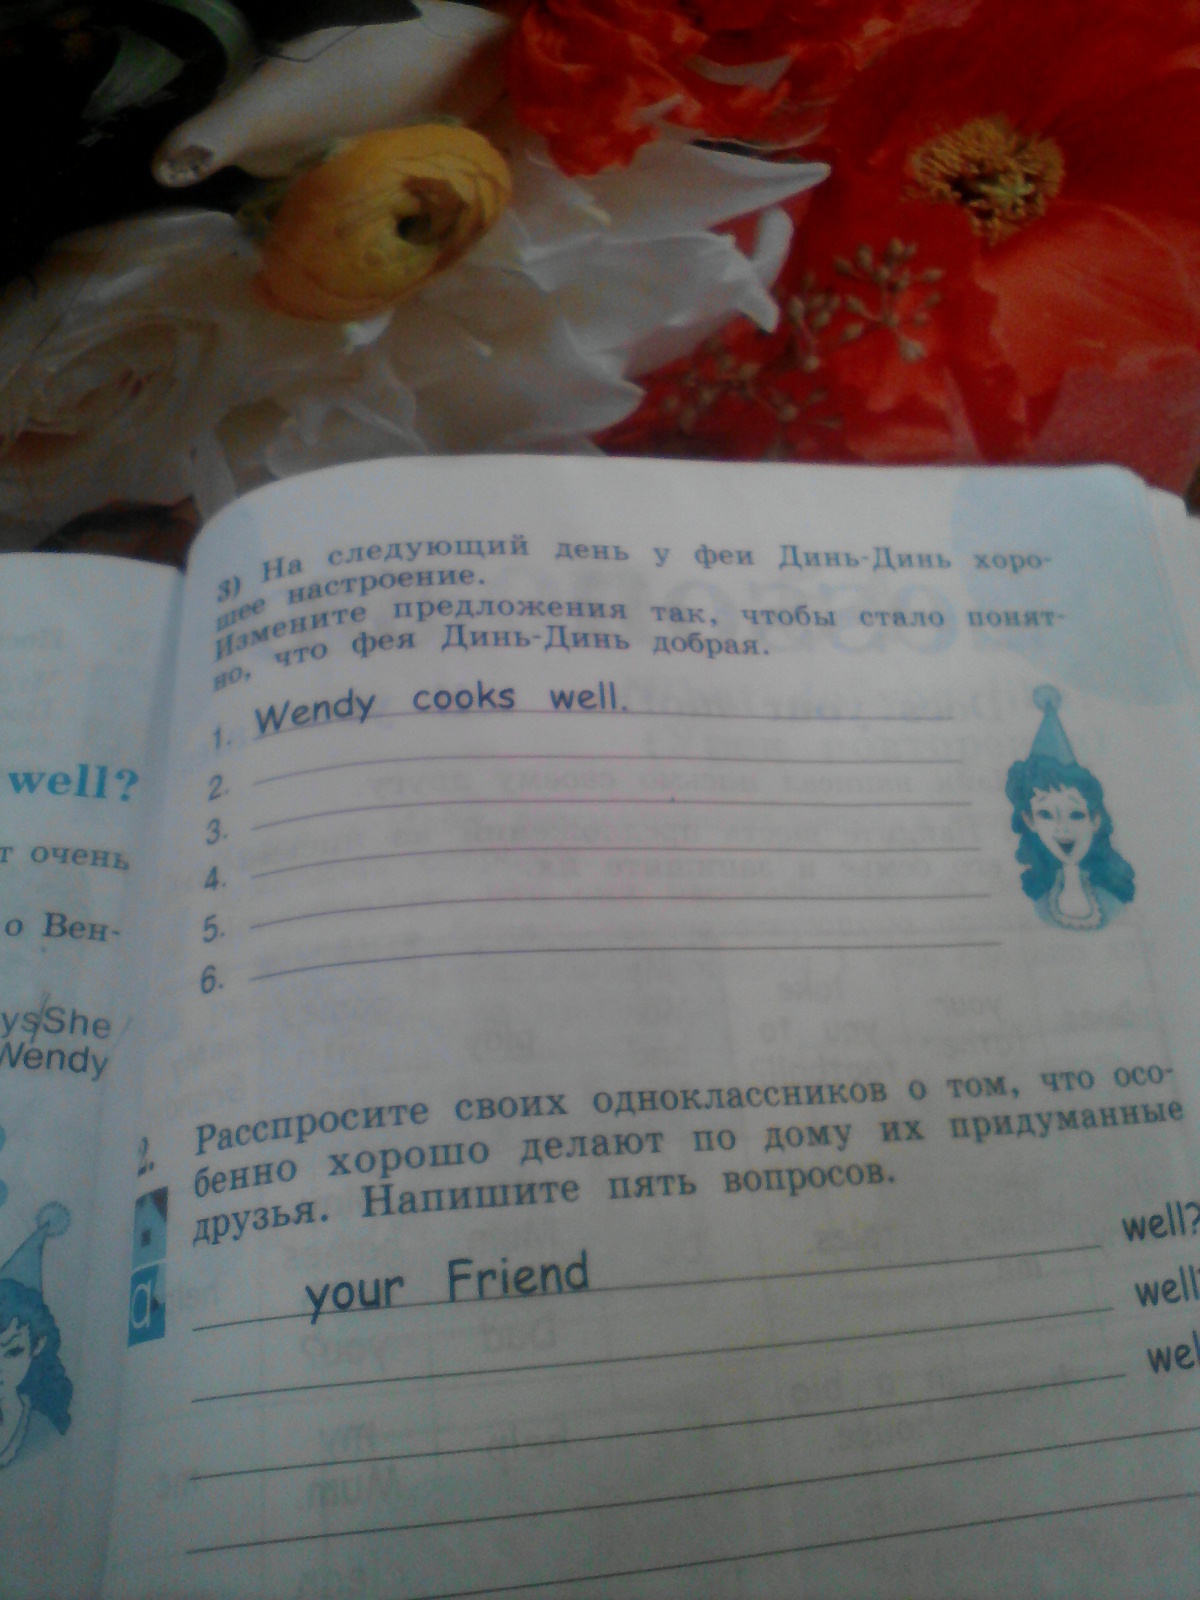 well?
т очень
о Вен-
ys/She
Wendy
3) На следующий день у феи Динь-Динь хоро-
шее настроение.
Измените предложения так, чтобы стало понят-
но, что фея Динь-Динь добрая.
1. Wendy cooks well.
2.
3.
4.
5.
6.
2. Расспросите своих одноклассников о том, что осо-
бенно хорошо делают по дому их придуманные
друзья. Напишите пять вопросов.
your Friend well?
well?
wel